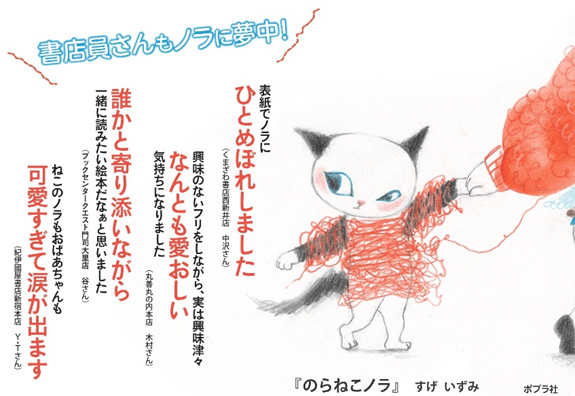 書店員さんもノラに夢中!
表紙でノラに
ひとめぼれしました
(くまざわ書店西新井店 中沢さん)
興味のないフリをしながら、実は興味津々
なんとも愛おしい
気持ちになりました
(丸善丸の内本店 木村さん)
誰かと寄り添いながら
一緒に読みたい絵本だなぁと思いました
(ブックセンタークエスト門司大里店 谷さん)
ねこのノラもおばあちゃんも
可愛すぎて涙が出ます
(紀伊國屋書店新宿本店 Y・Tさん)
『のらねこノラ』 すげ いずみ ポプラ社